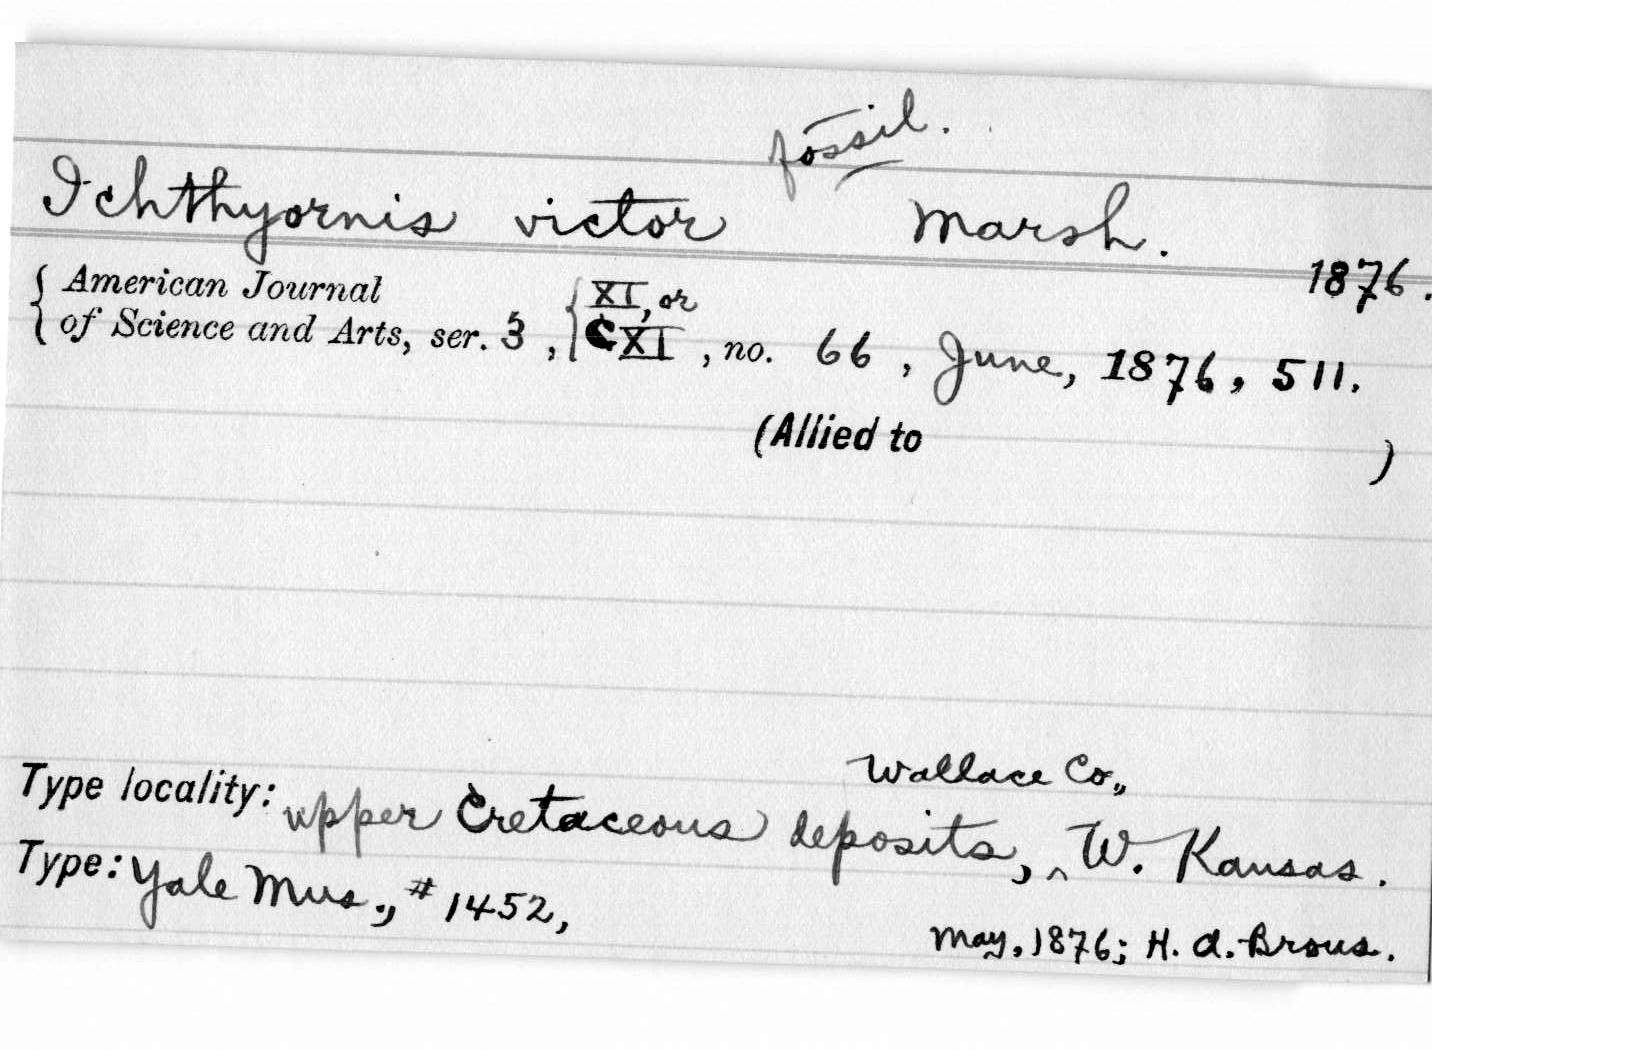 fossil.
Ichthyornis victor Marsh.
1876.
{ American Journal { XI, or
of Science and Arts, ser. 3, CXI, no. 66, June, 1876, 511.
(Allied to )
Wallace Co.,
Type locality: upper Cretaceous deposits, ^ W. Kansas.
Type: Yale Mus., # 1452,
May, 1876; H. A. Brous.